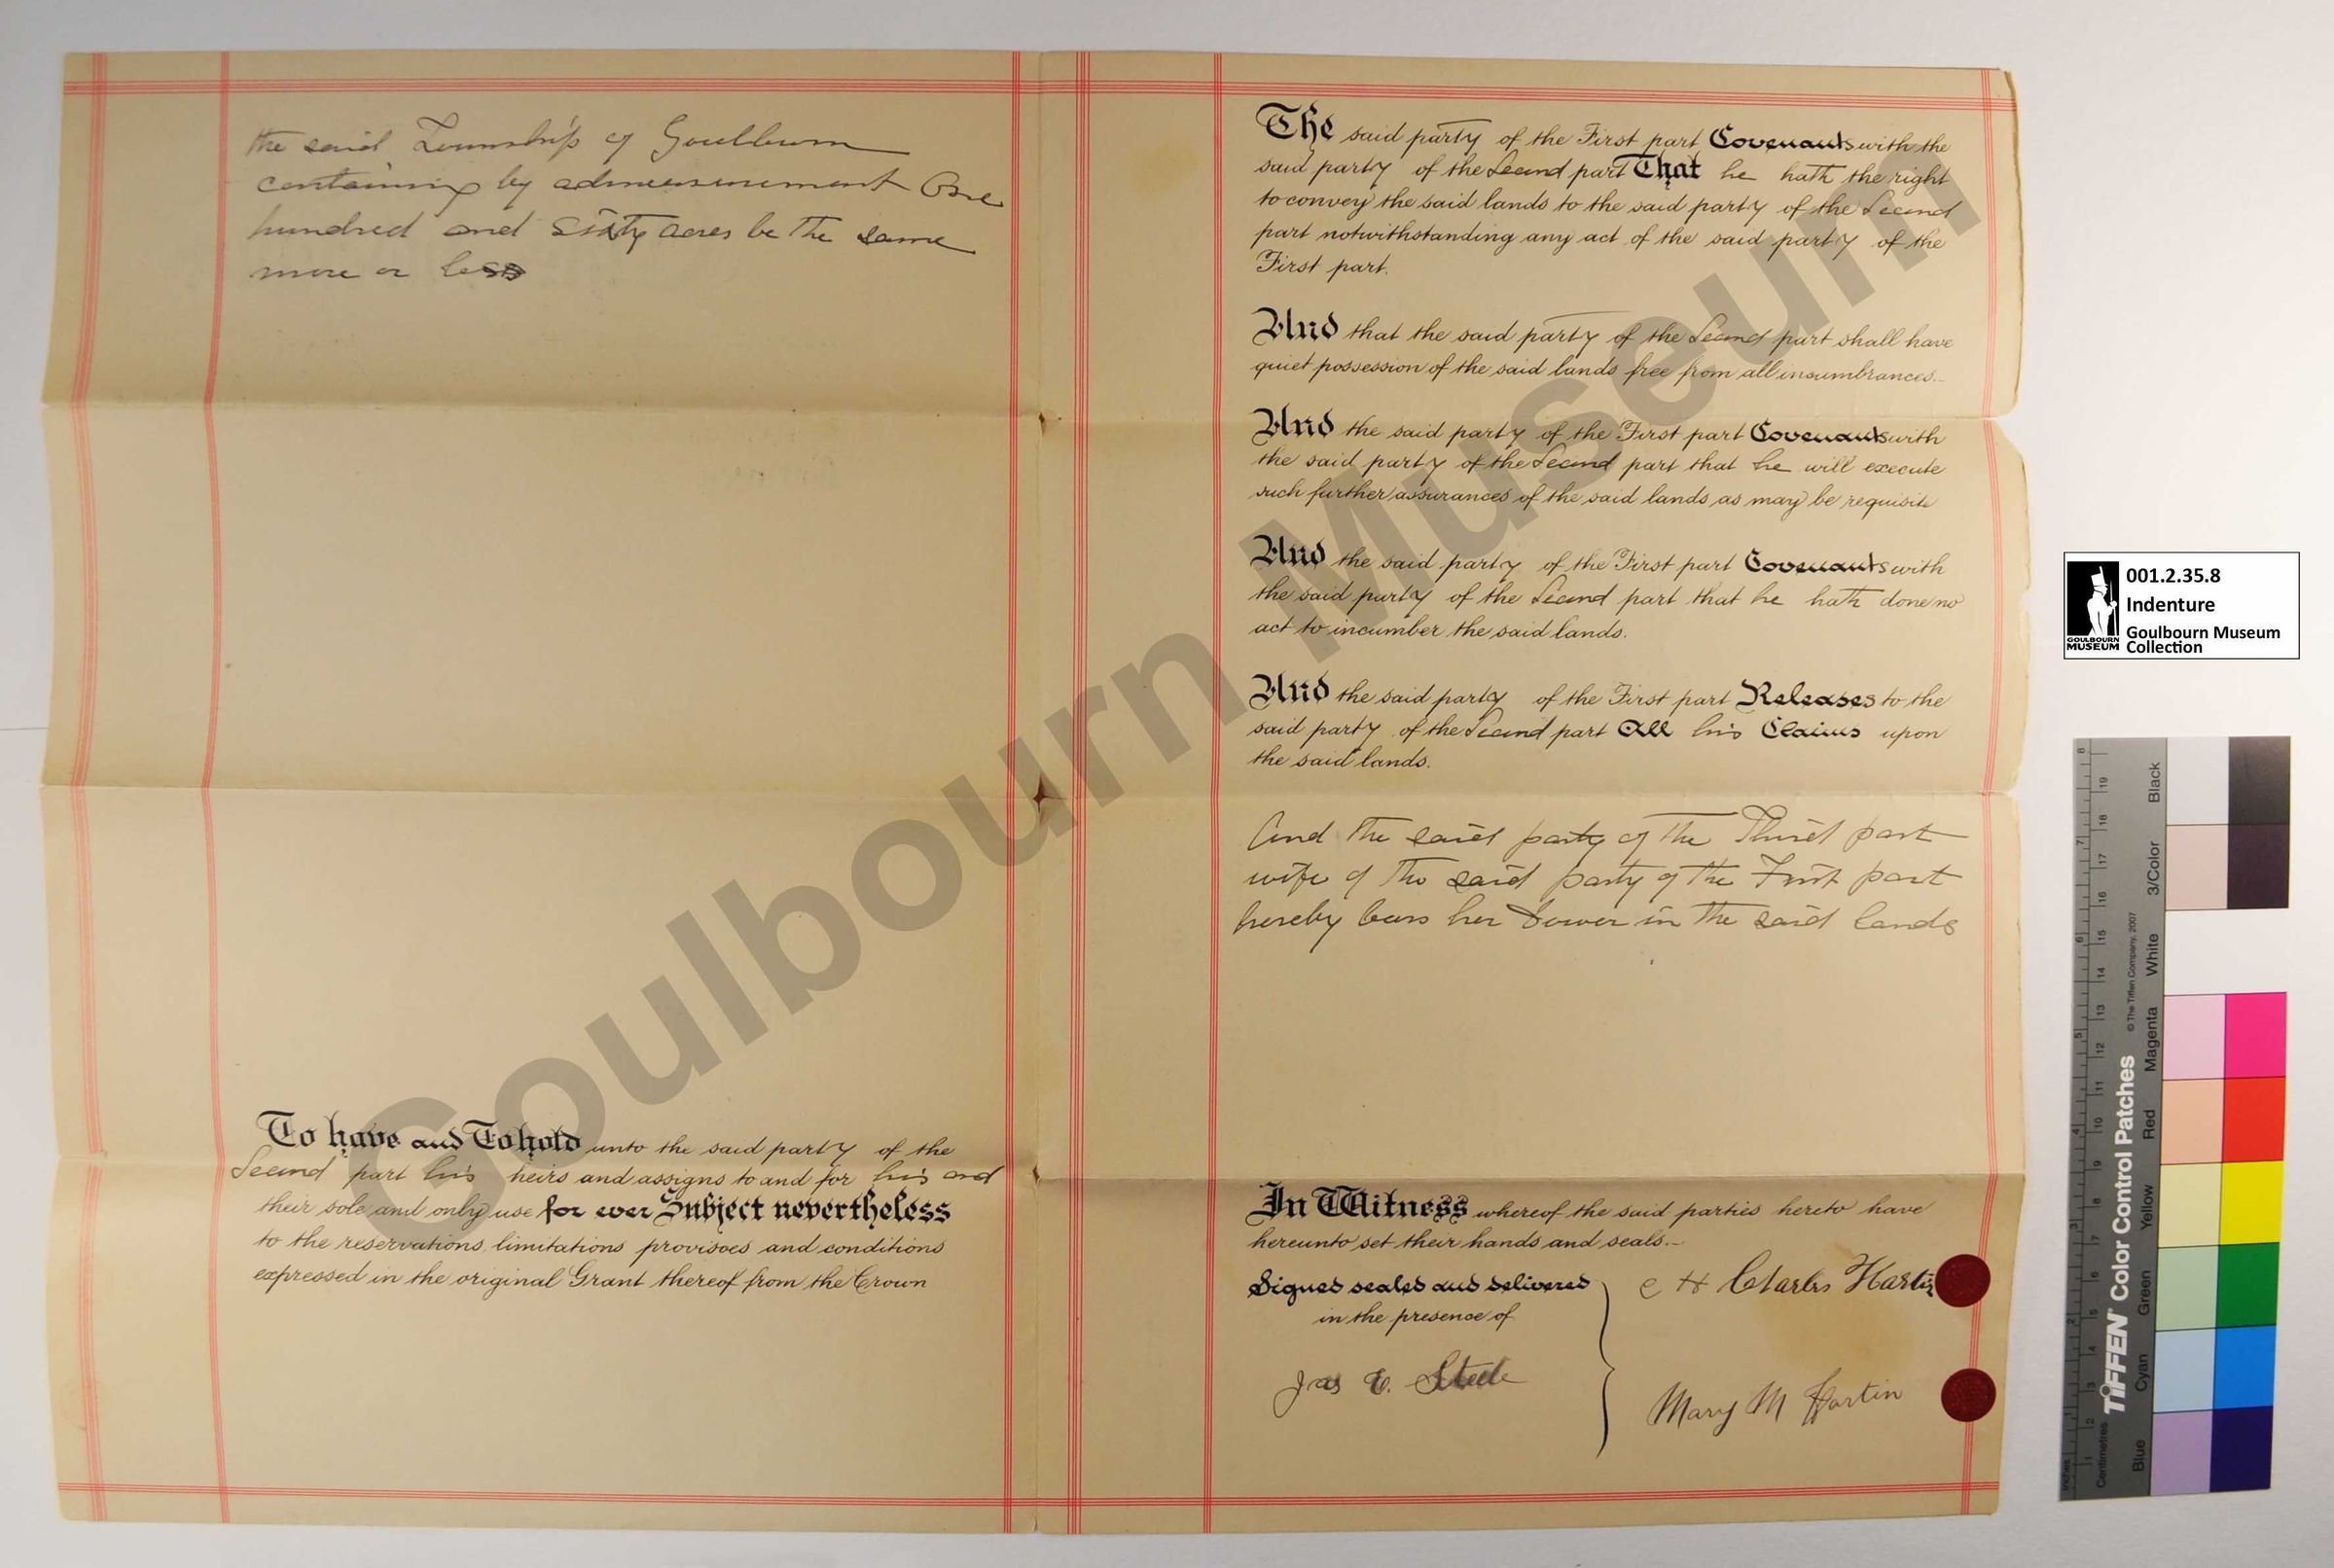 the said Township of Goulburn
containing by admeasurement One
hundred and Sixty acres be the same
more or less
To have and To hold unto the said party of the
Second part his heirs and assigns to and for his and
their sole and only use for ever Subject nevertheless
to the reservations, limitations provisoes and conditions
expressed in the original Grant thereof from the Crown
The said party of the First part Covenants with the
said party of the Second part That he hath the right
to convey the said lands to the said party of the Second
part notwithstanding any act of the said party of the
First part.
And that the said party of the Second part shall have
quiet possession of the said lands free from all incumbrances.
And the said party of the First part Covenants with
the said party of the Second part that he will execute
such further assurances of the said lands as may be requisite
And the said party of the First part Covenants with
the said party of the Second part that he hath done no
act to incumber the said lands.
And the said party of the First part Releases to the
said party of the Second part All his Claims upon
the said lands.
And the said party of the Third part
wife of the said party of the First part
hereby bars her Dower in the said lands
In Witness whereof the said parties hereto have
hereunto set their hands and seals.
Signed sealed and delivered
in the presence of
Jas E. Steele
C H Charles Hartin
Mary M Hartin
Goulbourn Museum
001.2.35.8
Indenture
Goulbourn Museum
Collection
GOULBOURN
MUSEUM
TIFFEN Color Control Patches
© The Tiffen Company, 2007
Centimetres
Inches
Blue
Cyan
Green
Yellow
Red
Magenta
White
3/Color
Black